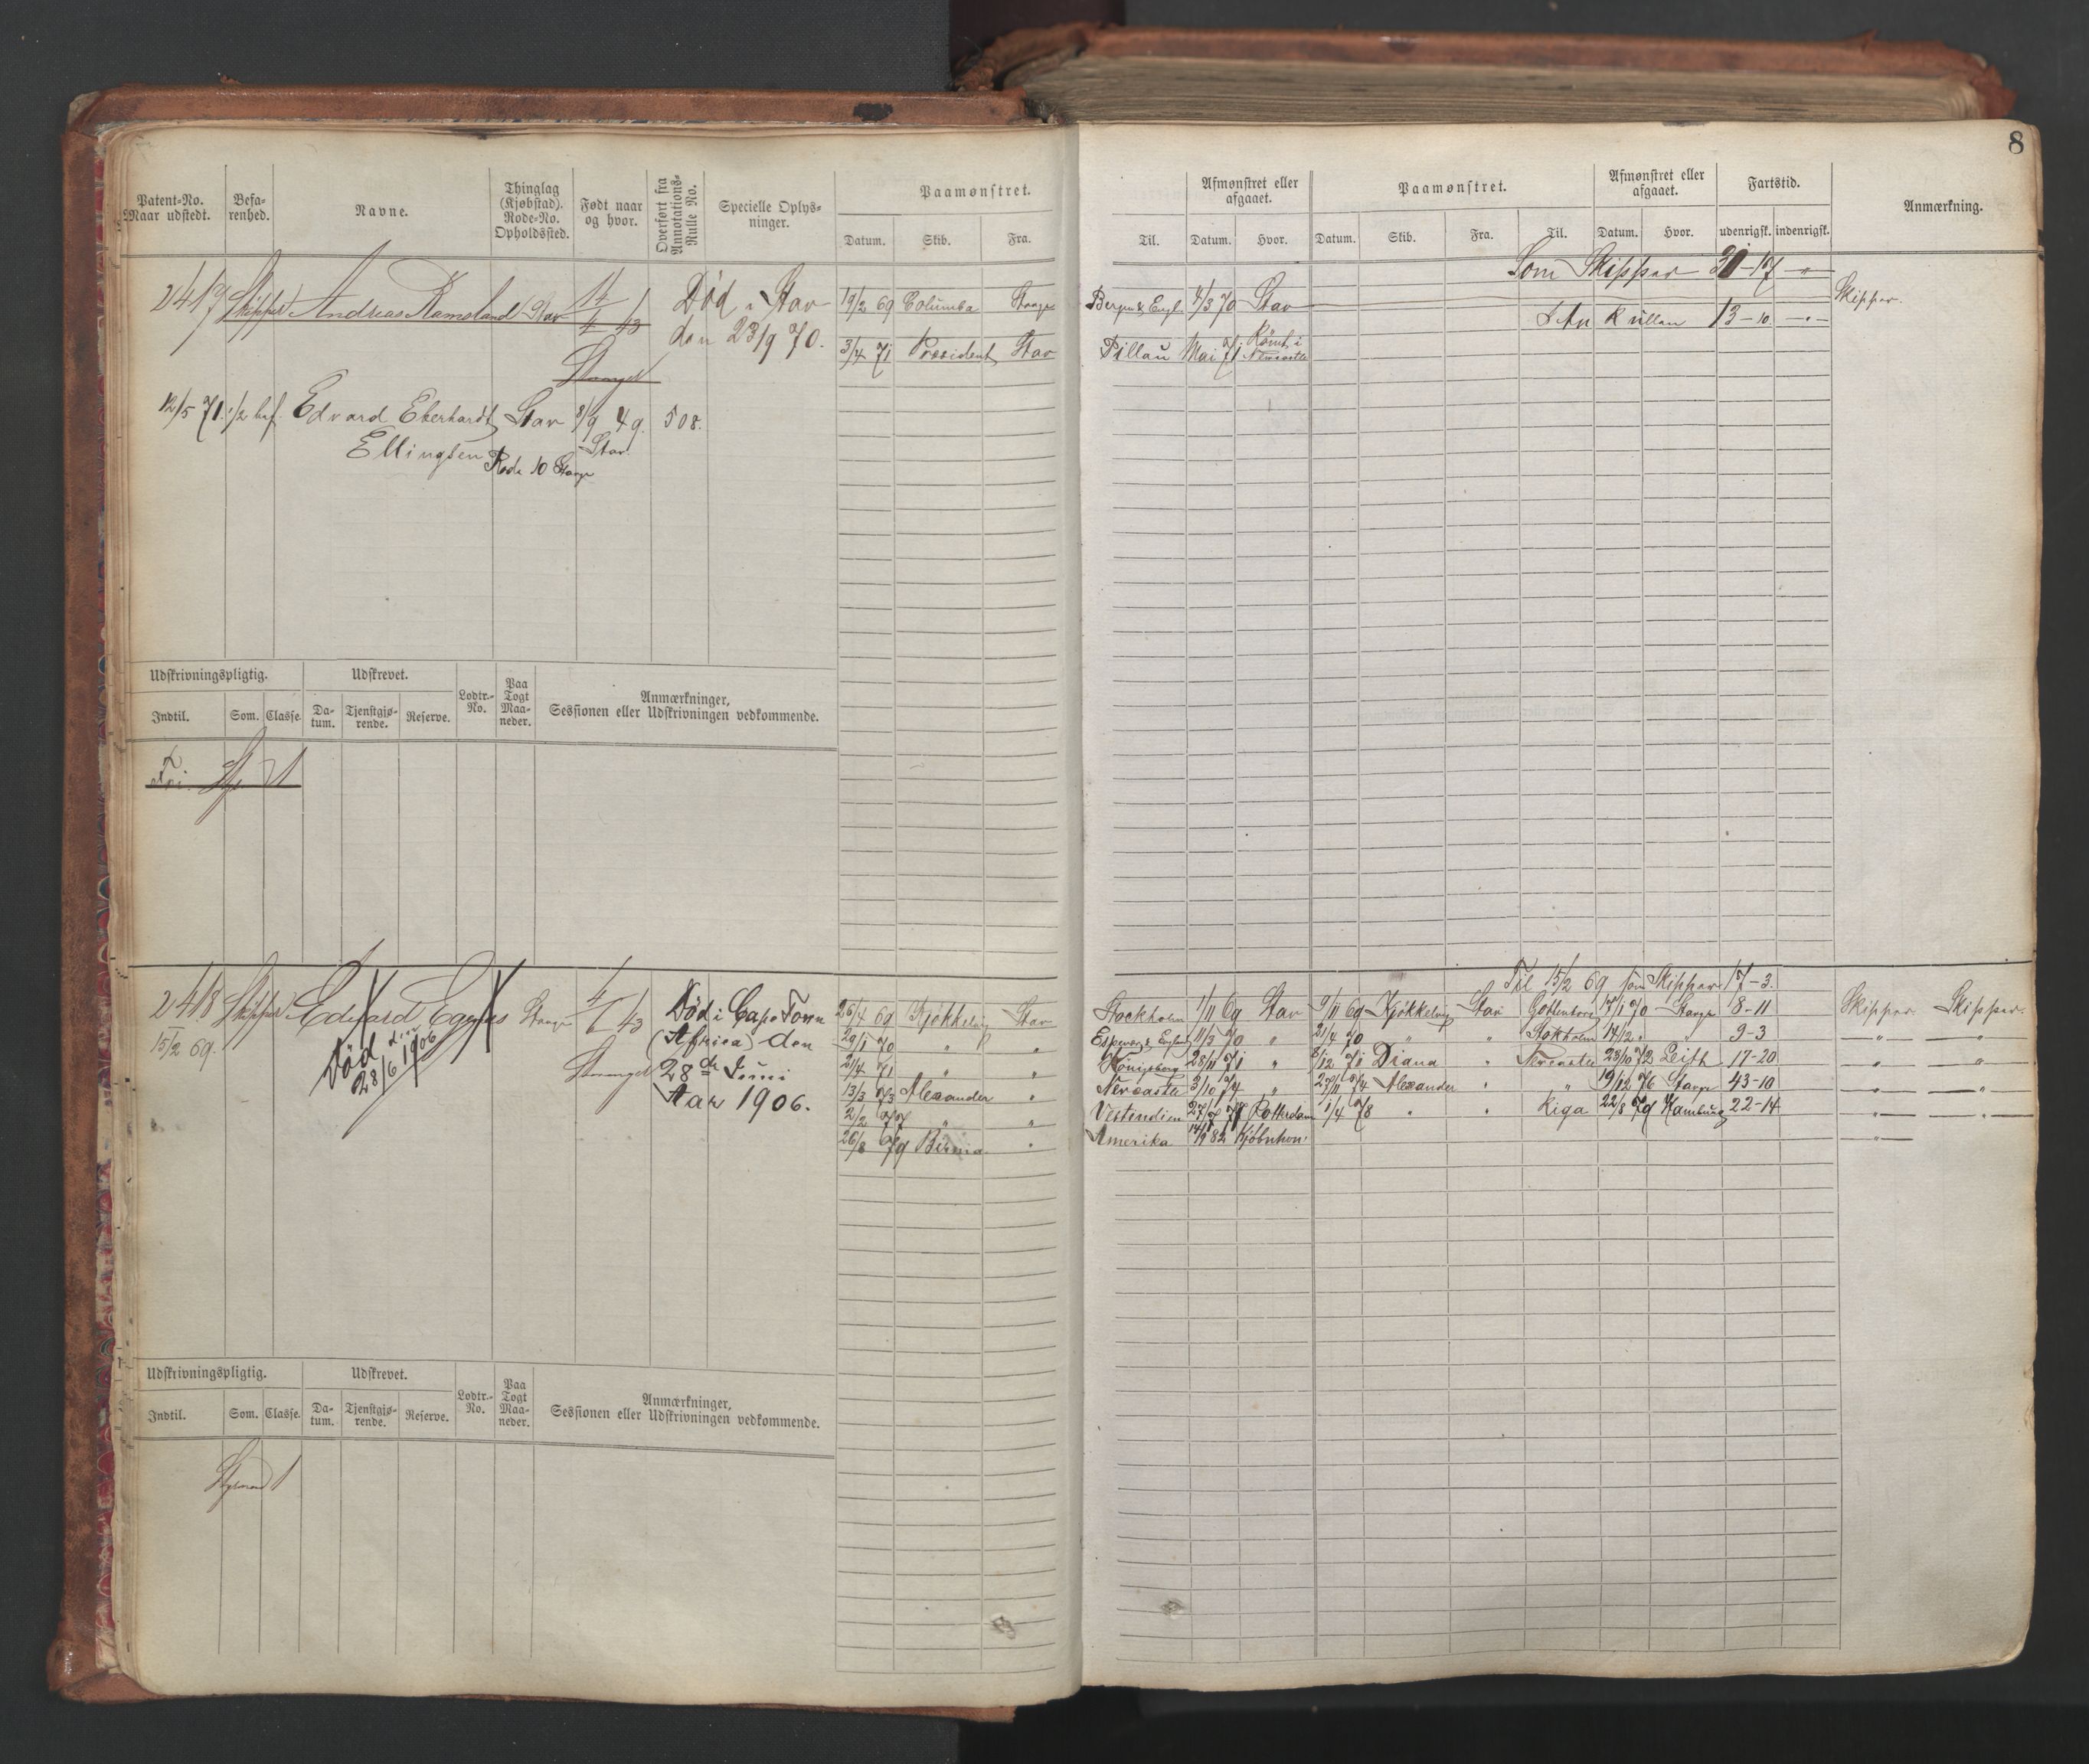 8
Patent-No. Naar udstedt.
Befarenhed.
Navne.
Thinglag (Kjøbstad). Rode-No. Opholdssted.
Født naar og hvor.
Overført fra Annotations-Rulle No.
Specielle Oplysninger.
Paamønstret.
Datum. Skib. Fra. Til.
Afmønstret eller afgaaet.
Datum. Hvor.
Paamønstret.
Datum. Skib. Fra. Til.
Afmønstret eller afgaaet.
Datum. Hvor.
Fartstid.
udenrigsk. indenrigsk.
Anmærkning.
2417 Skipper Andreas Rameland Stav 14/4 43
Død i Stav
den 23/9 70.
Som Skipper
19/2 69 Columba Stavgr Bergen & Engl. 4/3 70 Stav Skipper.
13-10
3/4 71 President Stav Pillau Mai 71 Rømt i Newcastle
12/5 71. 1/2 bef. Edvard Eberhardt Stav 8/9 49. 508.
Ellingsen Stav.
Rode 10 Stavgr
Udskrivningspligtig.
Indtil. Som. Classe.
Udskrevet.
Datum. Tjenstgjørende. Reserve.
Lodtr.-No.
Paa Togt Maaneder.
Anmærkninger, Sessionen eller Udskrivningen vedkommende.
Fri St 1
2418 Skipper Edvard Egenæs Stavgr 4/6 43
15/2 69.
Død 28/6 1906
Død i Cape Town
(Africa) den
28de Juni
Aar 1906.
Til 15/2 69 som Skipper 17-3.
26/4 69 Kjøkkelvig Stav Stockholm 1/11 69 Stav 9/11 69 Kjøkkelvig Stav Gottenborg 17/1 70 Stavgr 8-11 Skipper Skipper.
29/1 70 " " 11/3 70 " 21/4 70 " " Stokholm 14/12 " " 9-3 " "
21/4 71 " " Königsberg 28/11 71 " 8/12 71 Diana " Newcastle 23/10 72 Leith 17-20 " "
13/3 73 Alexander " Newcastle 3/10 74 " 27/11 74 Alexander " " 19/12 76 Stavgr 43-10 " "
2/2 77 " " Vestindien 27/1 78 Rotterdam 1/4 78 " " Riga 22/8 79 Hamburg 22-14 " "
26/8 79 Birma " Amerika 14/9 82 Kjøbnhvn. "
Udskrivningspligtig.
Indtil. Som. Classe.
Udskrevet.
Datum. Tjenstgjørende. Reserve.
Lodtr.-No.
Paa Togt Maaneder.
Anmærkninger, Sessionen eller Udskrivningen vedkommende.
Styrmand 1